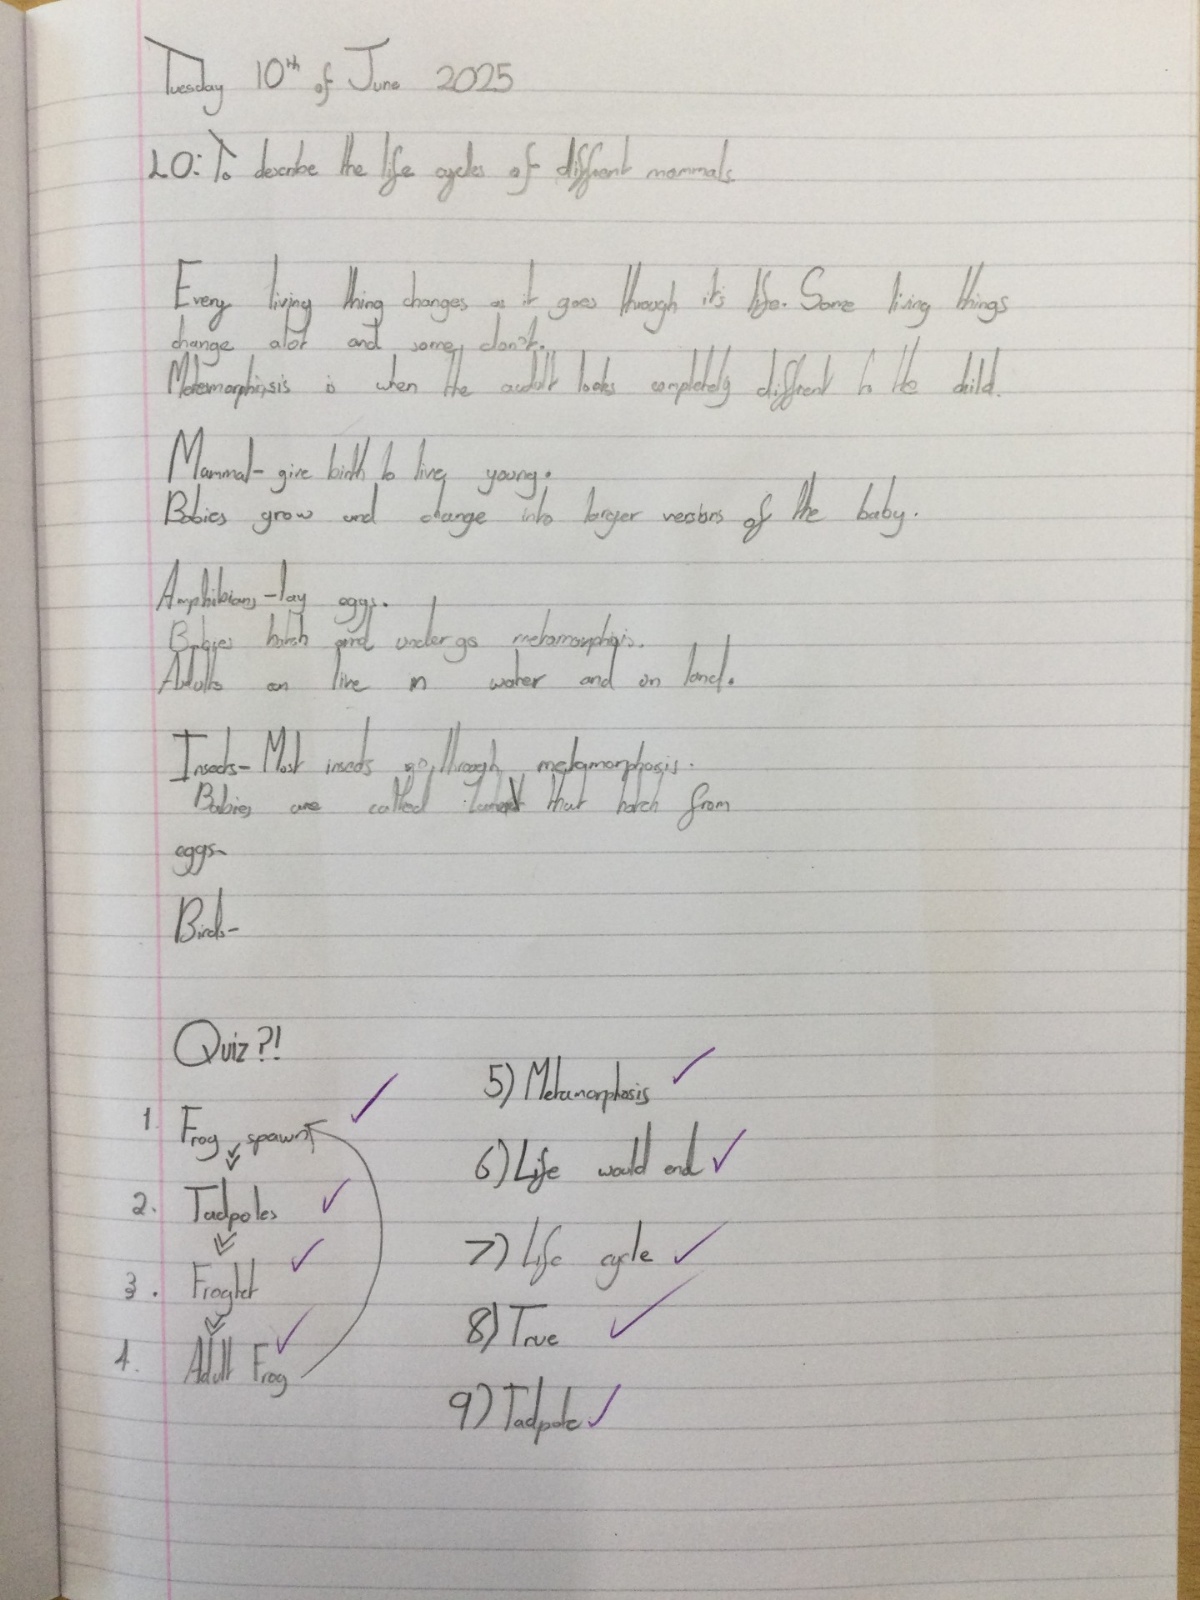 Tuesday 10th of June 2025
LO: To describe the life cycles of diffrent mammals
Every living thing changes as it goes through it's life. Some living things
change alot and some don't.
is when the adult looks completely diffrent to the child.
Mammal- give birth to live young.
Babies grow and change into larger versions of the baby.
Amphibians - lay eggs.
Babies hatch and undergo metamorphisis.
Adults can live in water and on land.
Insects- Most insects go through metamorphosis.
Babies are called that hatch from
eggs-
Birds-
Quiz?!
1. Frog spawn
2. Tadpoles
3. Froglet
4. Adult Frog
5) Metamorphosis
6) Life would end
7) Life cycle
8) True
9) Tadpole